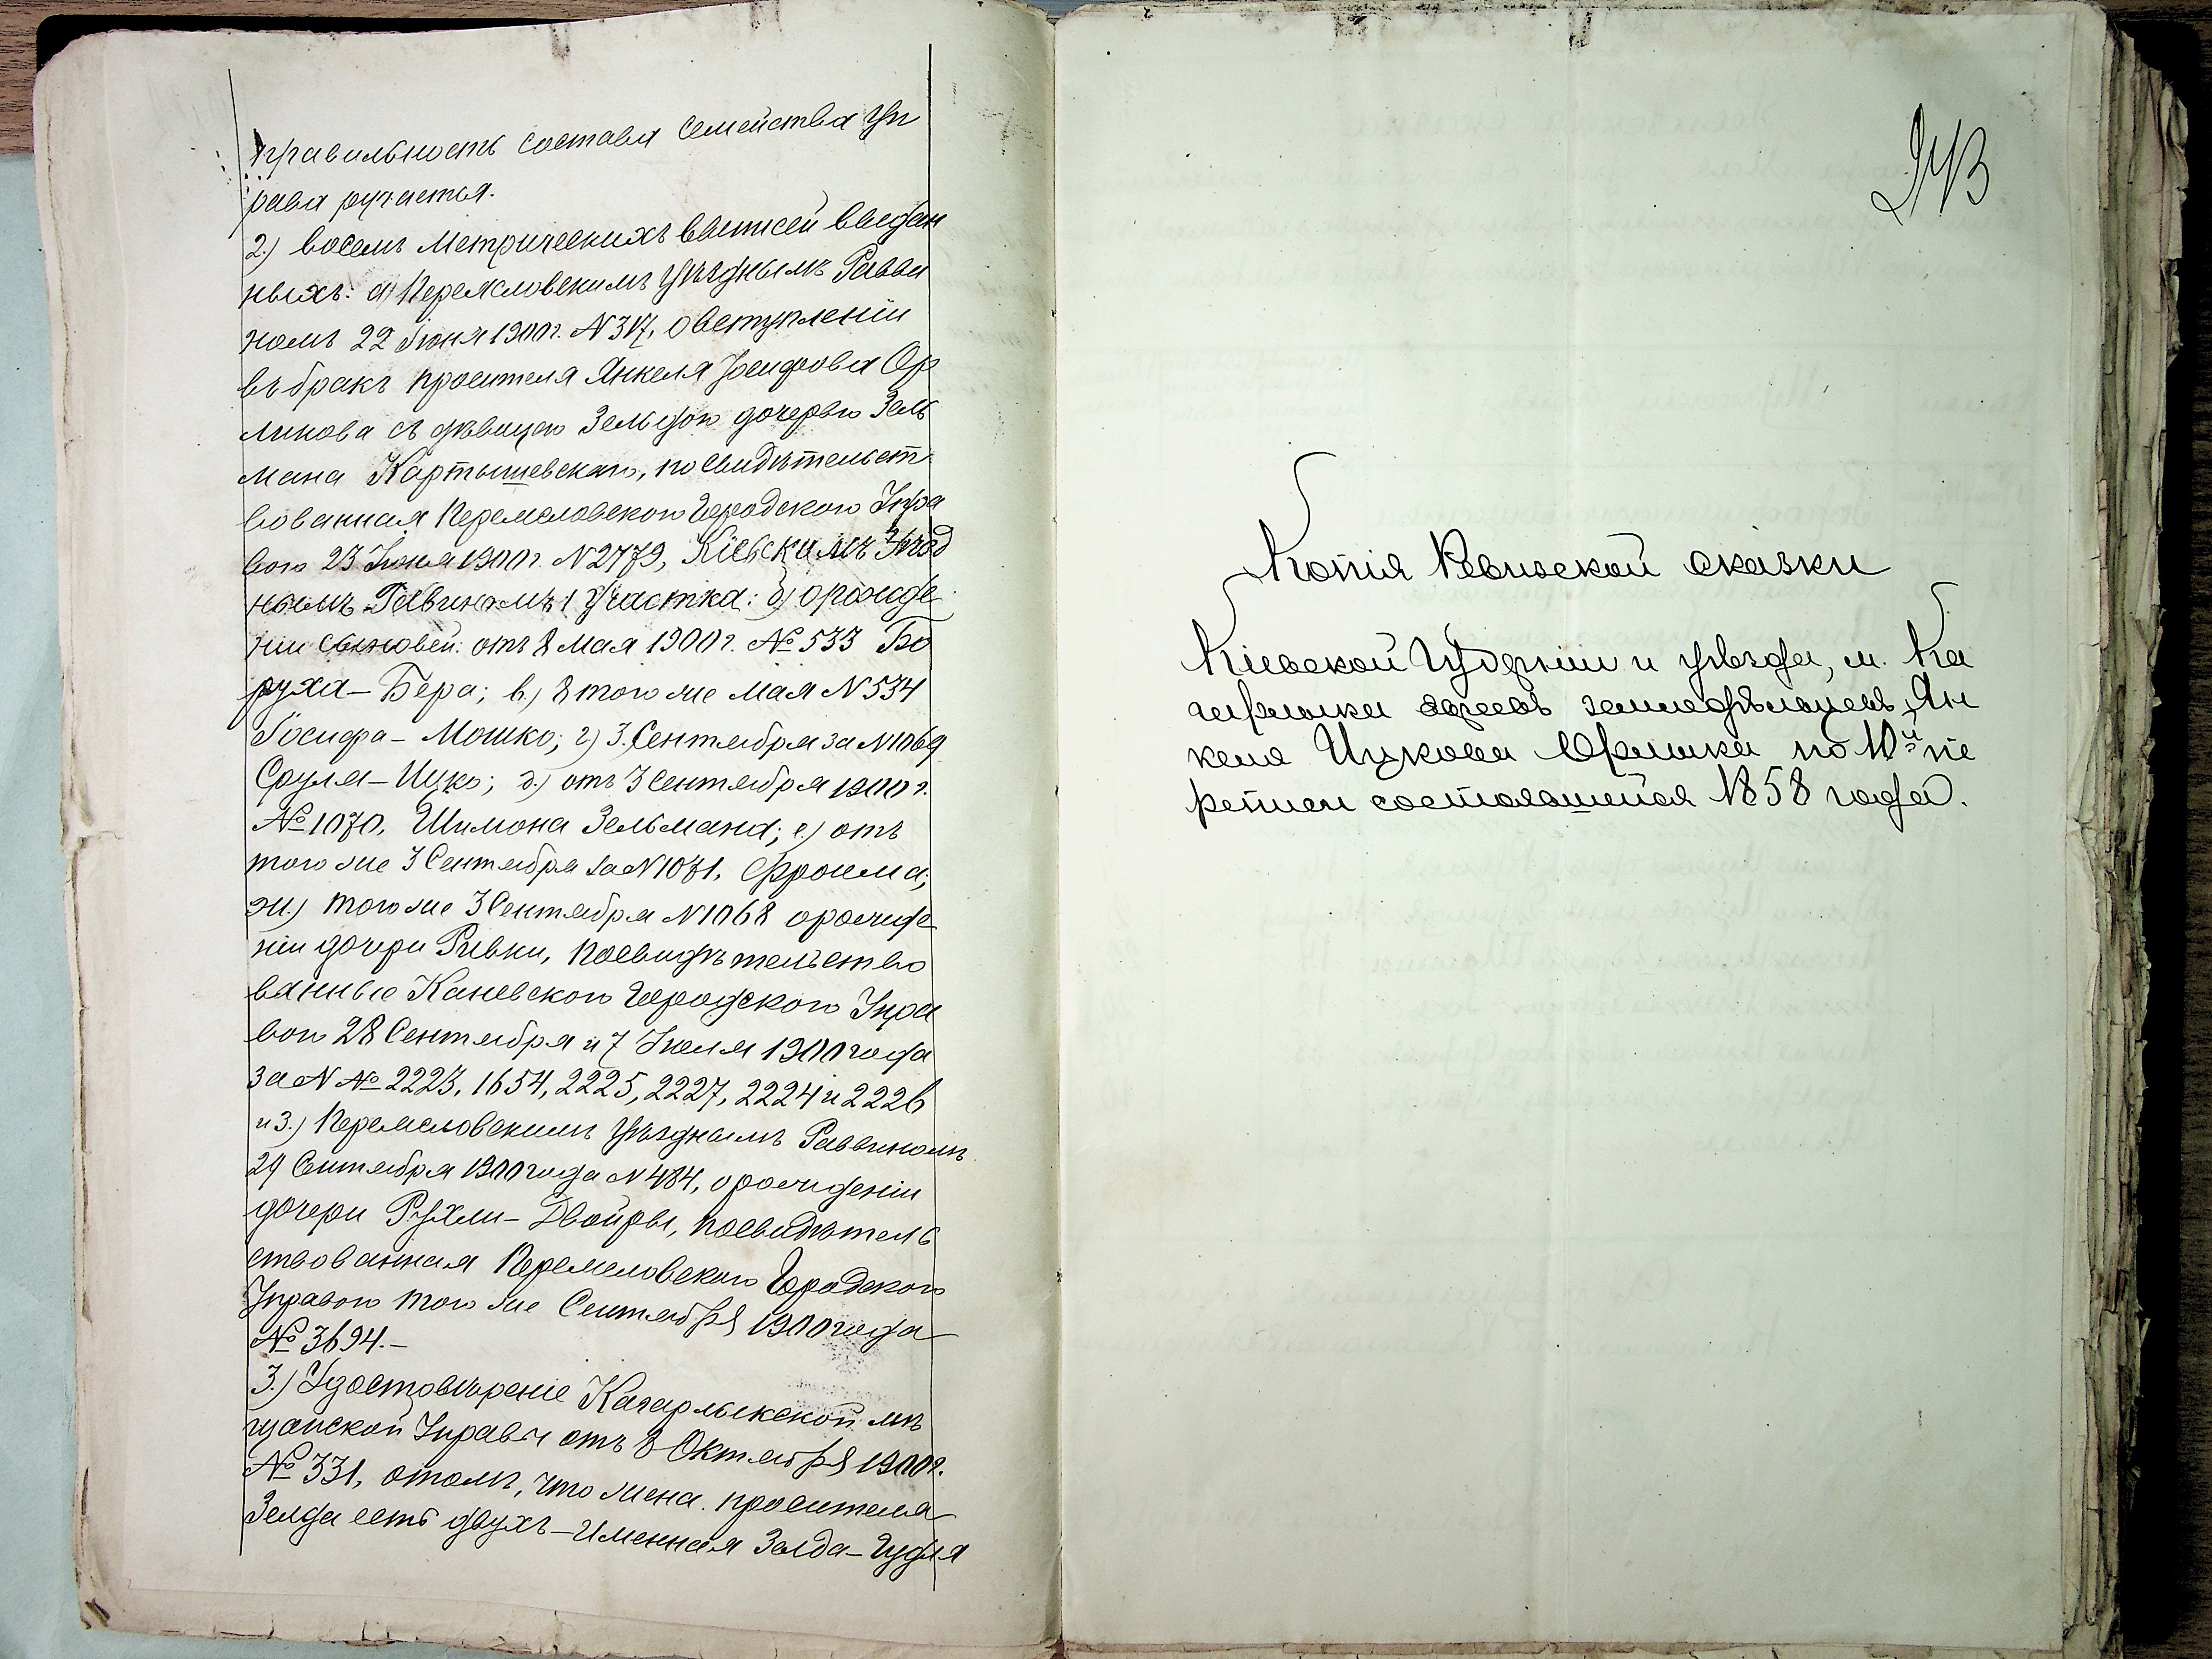 правильность состава семейства Уп
рава ручается.
2.) восемь метрическихъ выписей выдан
ныхъ: а) Переяславскимъ Уѣзднымъ Равви
номъ 22 Іюня 1900 г. N 317, о вступленіи
въ бракъ просителя Янкеля Іосифова Ор
ликова съ дѣвицею Зельдою дочерью Зель
мана Картышевскаго, посвидѣтельст
вованная Переяславскою Городскою Упра
вою 23 Іюня 1900 г. N 2779, Кіевскимъ Уѣзд
нымъ Раввиномъ 1 Участка: б) о рожде
ніи сыновей: отъ 8 Мая 1900 г. № 533 Бо
руха-Бера; в.) 8 того же Мая N 534
Іосифа-Мошко; г) 3 Сентября за N 1069
Сруля-Ицко; д.) отъ 3 Сентября 1900 г.
№ 1070, Шимона Зельмана; е.) отъ
того же 3 Сентября за N 1071, Фроима;
ж.) того же 3 Сентября N 1068 о рожде
ніи дочери Ривки, посвидѣтельство
ванные Каневскою Городскою Упра
вою 28 Сентября и 7 Іюля 1900 года
за N № 2223, 1654, 2225, 2227, 2224 и 2226
и з.) Переяславскимъ Уѣзднымъ Раввиномъ
24 Сентября 1900 года N 484, о рожденіи
дочери Рухли-Двойры, посвидѣтель
ствованная Переяславскою Городскою
Управою того же Сентября 1900 года
№ 3694.-
3.) Удостовѣреніе Кагарлыкской мѣ
щанской Управы отъ 8 Октября 1900 г.
№ 331, о томъ, что жена просителя
Зелда есть двухъ-именная Зелда-Гудля
243
Копія Ревизской сказки
Кіевской Губерніи и уѣзда, м. Ка
гарлыка евреевъ земледѣльцевъ Ян
келя Ицкова Орлика по 10й пе
реписи состоявшейся 1858 года.